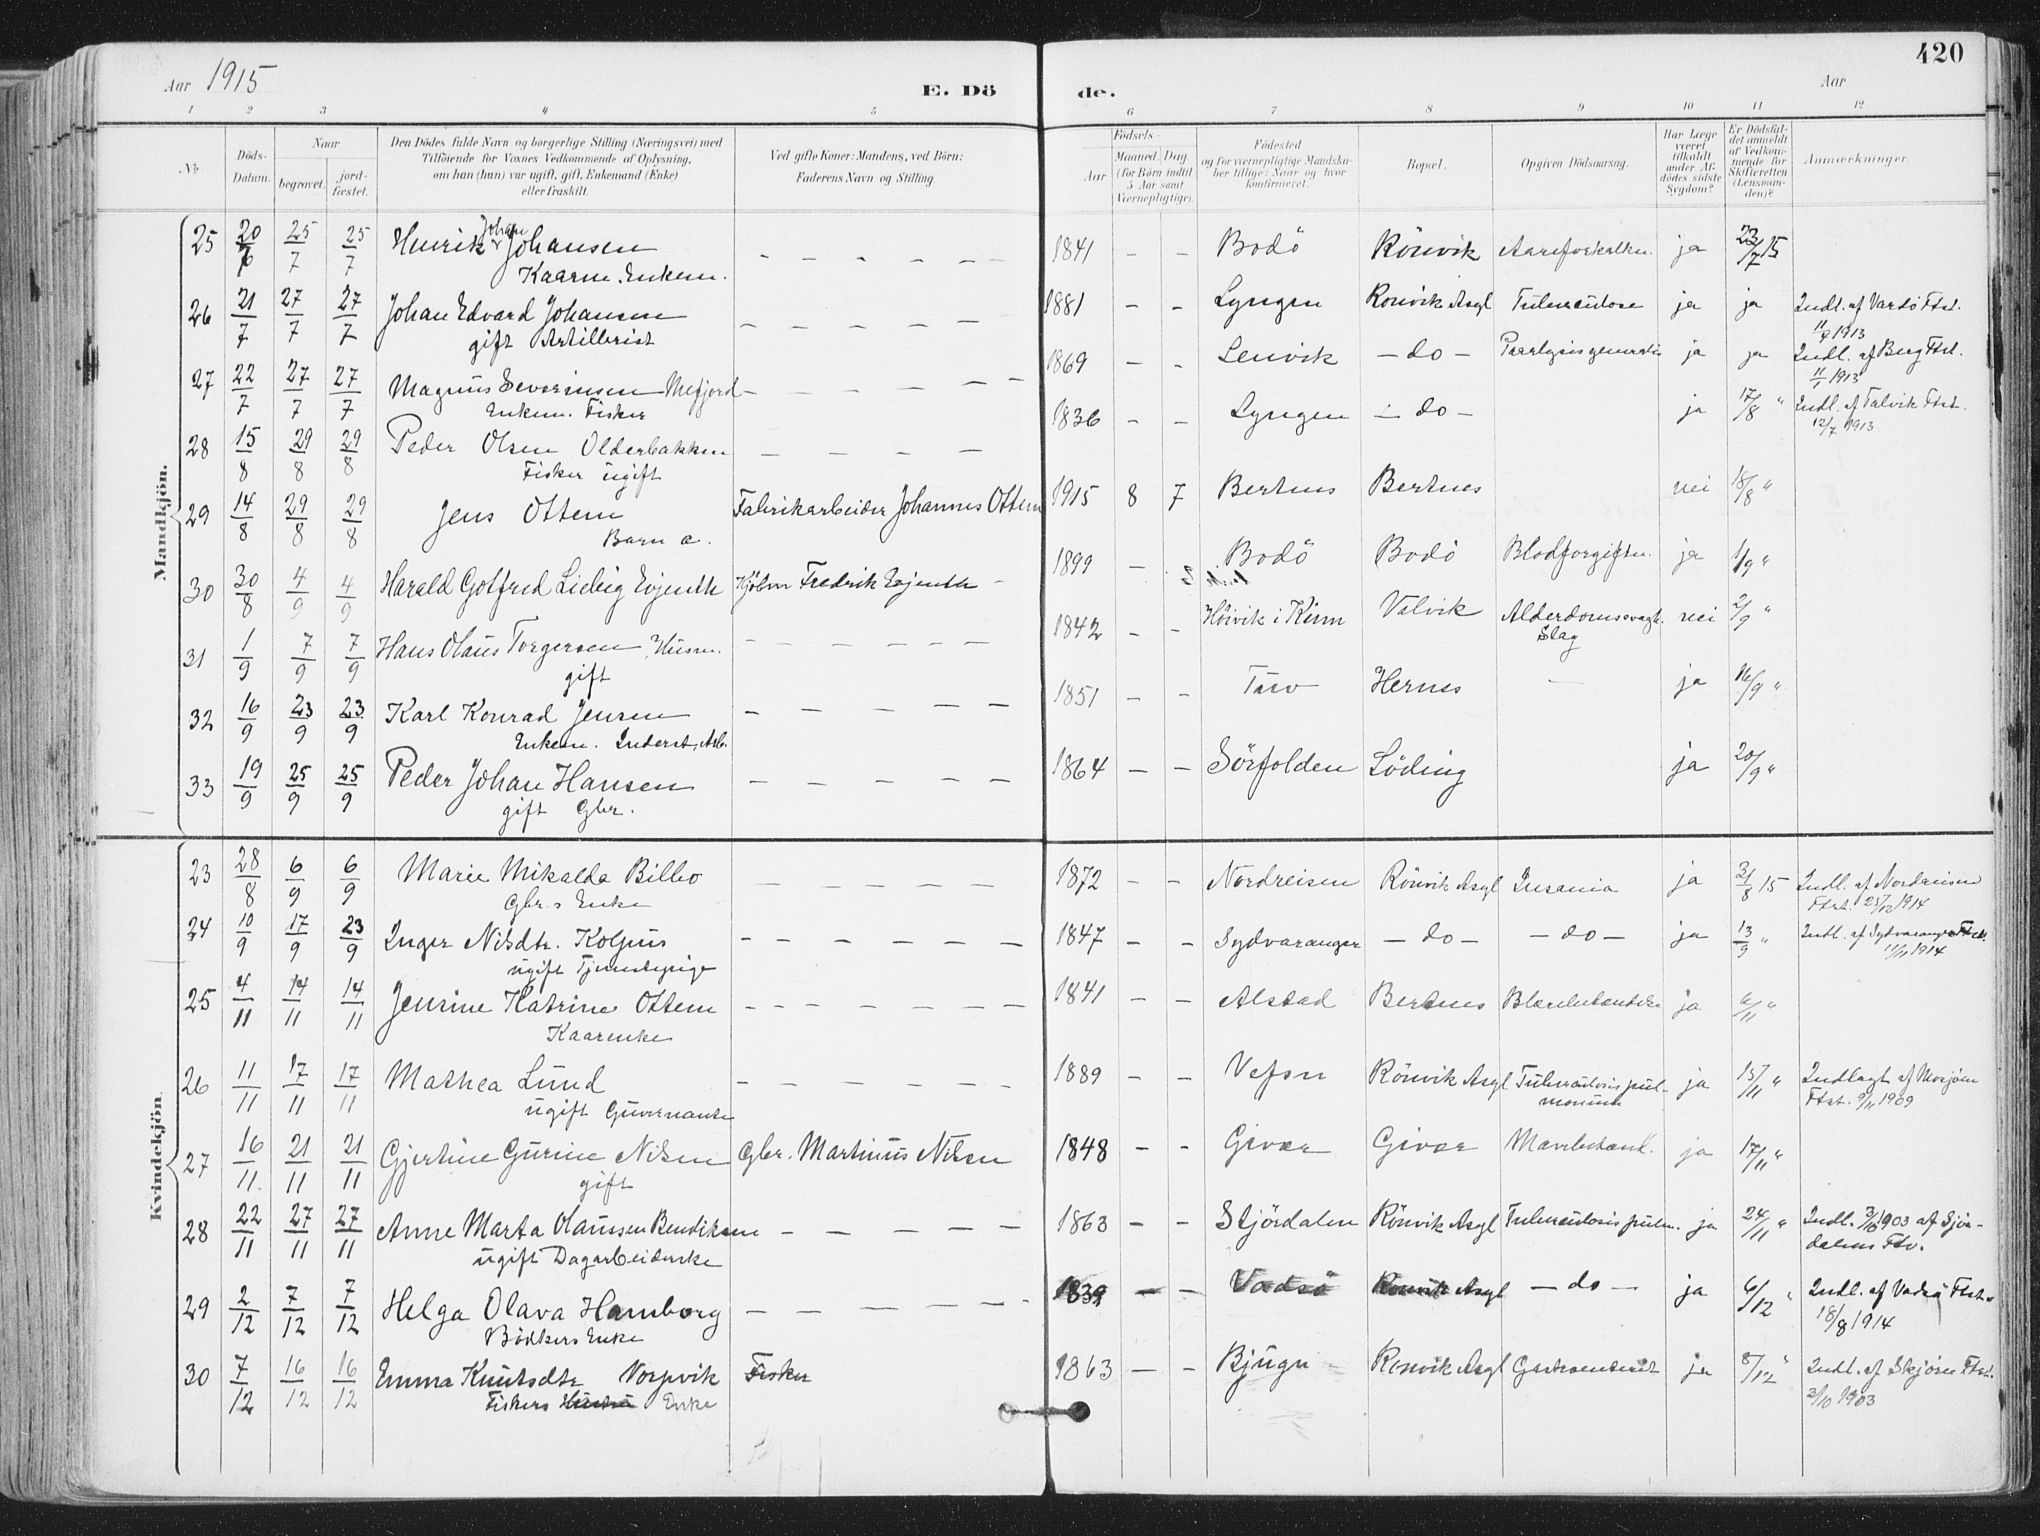 Aar 1915
E. Dö de.
420
Aar
1 2 3 4 5 6 7 8 9 10 11 12
No
Döds-Datum.
Naar
begravet.
jord-fæstet.
Den Dödes fulde Navn og borgerlige Stilling (Næringsvei) med
Tilföiende for Voxnes Vedkommende af Oplysning,
om han (hun) var ugift, gift, Enkemand (Enke)
eller fraskilt.
Ved gifte Koner: Mandens, ved Börn:
Faderens Navn og Stilling.
Födsels-
Aar
Maaned. Dag
(for Börn indtil
5 Aar samt
Værnepligtige).
Födested
og for værnepligtige Mandska-
ber tillige: Naar og hvor
konfirmeret.
Bopæl.
Opgiven Dödsaarsag.
Har Læge
været
tilkaldt
under Af-
dödes sidste
Sygdom?
Er Dödsfal-
det anmeldt
af Vedkom-
mende for
Skifteretten
(Lensman-
den)?
Anmærkninger.
Mandkjön.
25 20/7 25/7 25/7 Henrik Johan Johansen — — — — — 1841 — — Bodö Rönvik Aareforkalkn. ja 23/7 15
Kaarm. Enkem.
26 21/7 27/7 27/7 Johan Edvard Johansen — — — — — 1881 — — Lyngen Rönvik Asyl Tuberculose ja ja Indl. af Vardö Ftst.
gift Artillerist
1913
27 22/7 27/7 27/7 Magnus Severinsen Mefjord — — — — — 1869 — — Lenvik — do — Paralysis generalis ja ja Indl. af Berg Ftst.
Enkem. Fisker
1913
28 15/8 29/8 29/8 Peder Olsen Olderbakken — — — — 1836 — — Lyngen — do — ja 17/8 " Indl. af Talvik Ftst.
Fisker ugift
12/7 1913
29 14/8 29/8 29/8 Jens Ottem Fabrikarbeider Johannes Ottem 1915 8 7 Bertnes Bertnes nei 18/8 "
Barn a.
30 30/8 4/9 4/9 Harald Gotfred Liebig Evjenth Kjöbm Fredrik Evjenth 1899 — Bodö Bodö Blodforgiftn. ja 1/9 "
31 1/9 7/9 7/9 Hans Olaus Torgersen, Husm. — — — — — 1842 — — Höivik i Kinn Valvik Alderdomssvagh. nei 2/9 "
gift
Slag
32 16/9 23/9 23/9 Karl Konrad Jensen — — — — — 1851 — — Hernes — ja 16/9 "
Enkem. Inderst, Arb.
33 19/9 25/9 25/9 Peder Johan Hansen — — — — — 1864 — — Sörfolden Löding ja 20/9 "
gift Gbr.
Kvindekjön.
23 28/8 6/9 6/9 Marie Mikalda Bilbo — — — — — 1872 — — Nordreisen Rönvik Asyl Insania ja 31/8 15 Indl. af Nordreisen
Gbr.s Enke
Ftst. 25/12 1914
24 10/9 17/9 23/9 Inger Nilsdtr. Kolpus — — — — — 1847 — — Sydvaranger — do — — do — ja 13/9 " Indl. af Sydvaranger Ftst.
ugift Tjenestepige
11/11 1914
25 4/11 14/11 14/11 Jensine Katrine Ottem — — — — — 1841 — — Alstad Bertnes ja 6/11 "
Kaarenke
26 11/11 17/11 17/11 Mathea Lund — — — — — 1889 — — Vefsn Rönvik Asyl Tuberculosis pul- ja 15/11 " Indlagt af Mosjöen
ugift Guvernante
monum
Ftst. 9/11 1909
27 16/11 21/11 21/11 Gjertine Gurine Nilsen Gbr. Martinus Nilsen 1848 — — Givær Givær Mavebetænd. ja 17/11 "
gift
28 22/11 27/11 27/11 Anne Marta Olaussen Bendiksen — — — — 1863 — — Stjördalen Rönvik Asyl Tuberculosis pulm. ja 24/11 " Indl. 3/10 1903 af Stjör-
ugift Dagarbeiderske
dalens Ftv.
29 2/12 7/12 7/12 Helga Olava Hamborg — — — — — 1839 — — Vadsö Rönvik Asyl — do — ja 6/12 " Indl. af Vadsö Ftst.
Bödkers Enke
18/8 1914
30 7/12 16/12 16/12 Emma Knutsdtr Vorpvik Fisker 1863 — — Bjugn Rönvik Asyl ja 8/12 " Indl. af Skjörn Ftst.
Fiskers Hustru Enke
3/10 1903